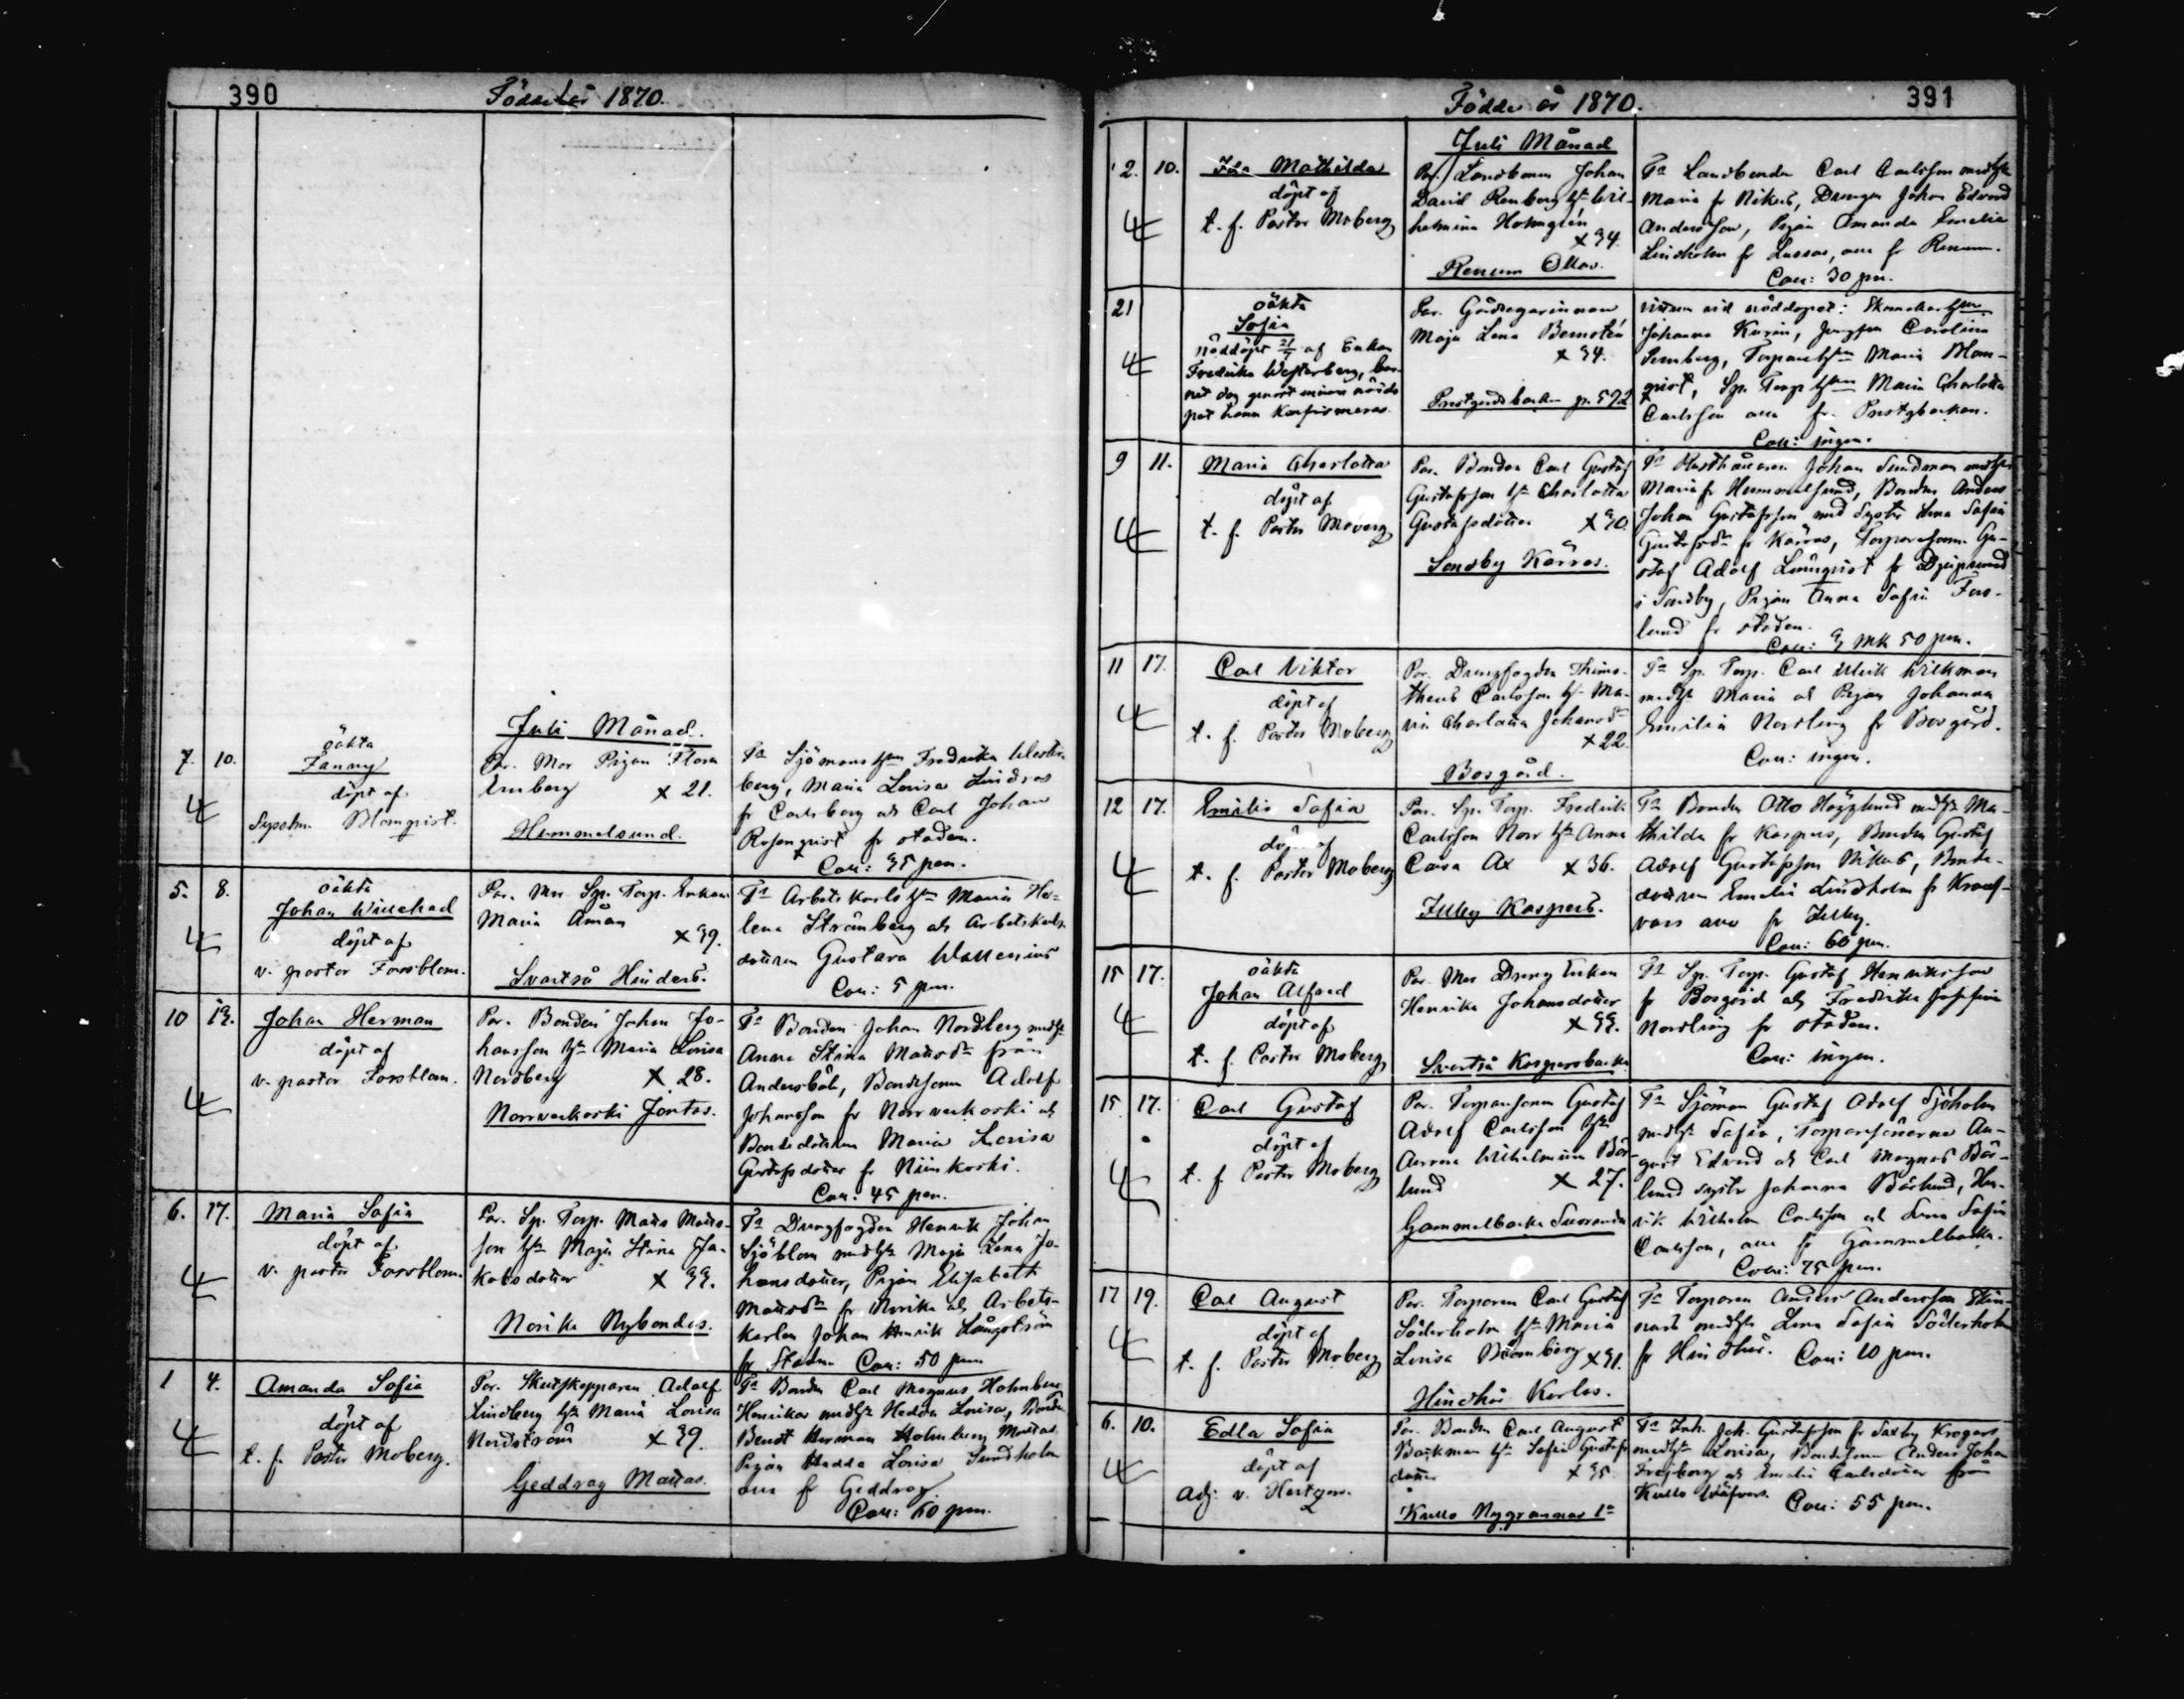 390
Födde år 1870.
Juli Månad.
7. 10.
oäkta
Fanny
döpt af
Blomqvist.
Par. Mor Pigan Flora
Emberg x 21.
Hummelsund.
Ta Sjömans hu Fredrika Wester
berg, Maria Lovisa Lindros
fr Carlsberg och Carl Johan
Rosenqvist fr staden.
Coll: 35 pen.
5. 8.
oäkta
Johan Willehad
döpt af
v. pastor Forsblom.
Par. Mor Sp. Torp. Enkan
Maria Åman
x 39.
Svartså Hinders.
Ta Arbets karls hu Maria He-
lena Strömberg och Arbetskarls
dottren Gustava Wallenius
Coll: 5 pen.
10 13.
Johan Herman
döpt af
v. pastor Forsblom.
Par. Bonden Johan Jo-
hansson hu Maria Lovisa
Nordberg x 28.
Norrveckoski Jontas.
Ta Bonden Johan Nordberg med hu
Anna Stina Matsdr från
Andersböle, Bondesonen Adolf
Johansson fr Norrveckoski och
Bondedottren Maria Lovisa
Gustafsdotter fr Niinikoski.
Coll: 45 pen.
6. 17.
Maria Sofia
döpt af
v. pastor Forsblom.
Par. Sp. Torp. Matts Matts-
son hu Maja Stina Ja-
kobsdotter x 33.
Norike Nybondas.
Ta Drengfogden Henrik Johan
Sjöblom med hu Maja Lena Jo-
hansdotter, Pigan Elisabeth
Mattsdr fr Norike och Arbets-
karlen Johan Henrik Långström
fr Staden Coll: 50 pen.
1 4.
Amanda Sofia
döpt af
t. f. Pastor Moberg.
Par. Skutskepparen Adolf
Lindberg hu Maria Lovisa
Nordström x 39.
Geddrag Mattas.
Ta Bonden Carl Magnus Holmberg
Henrikas med hu Hedda Lovisa, Bonden
Bengt Herman Holmberg Mattas
Pigan Hedda Lovisa Sundholm
alla fr Geddrag.
Coll: 60 pen.
391
Födde år 1870.
Juli Månad
2. 10.
Ida Mathilda
döpt af
t. f. Pastor Moberg
Par. Landbonden Johan
David Renberg hu Wil-
helmina Holmgrén
x 34.
Renum Ollas.
Ta Landbonden Carl Carlsson med hu
Maria fr Nikus, Drengen Johan Edvard
Andersson, Pigan Amanda Emelie
Lindholm fr Lassas, alla fr Renum.
Coll: 30 pen.
21
oäkta
Sofia
nöddöpt 21/7 af Enkan
Fredrika Westerberg, bar-
net dog genast innan nöddo-
pet hann konfirmeras.
Par. Gårdegarinnan
Maja Lena Bernstén
x 34.
Prestgårdsbacken p. 592
vittnen vid nöddopet: Skomakar hun
Johanna Kurén, Jungfru Carolina
Sernberg, Torpare hun Maria Blom-
qvist, Sp. Torp hun Maria Charlotta
Carlsson alla fr. Prestgbacken.
Coll: ingen.
9 11.
Maria Charlotta
döpt af
t. f. Pastor Moberg
Par. Bonden Carl Gustaf
Gustafsson hu Charlotta
Gustafsdotter x 30.
Sondby Kärras.
Ta Rusthållaren Johan Sundman med hu
Maria fr Hummelsund, Bonden Anders
Johan Gustafsson med syster Lena Sofia
Gustafsdr fr Kärras, Torparesonen Gu-
staf Adolf Lönnqvist fr Djupsund
i Sondby, Pigan Anna Sofia Fors-
lund fr staden.
Coll: 3 mk 50 pen.
11 17.
Carl Viktor
döpt af
t. f. Pastor Moberg
Par. Drengfogden Thimo-
theus Carlsson hu Ma-
ria Charlotta Johansdr
x 22.
Bosgård.
Ta Sp. Torp. Carl Ulrik Wilkman
med hu Maria och Pigan Johanna
Emilia Nordling fr Bosgård.
Coll: ingen.
12 17.
Emilia Sofia
döpt af
t. f. Pastor Moberg
Par. Sp. Torp. Fredrik
Carlsson Norr hu Anna
Caisa Ax x 36.
Illby Kaspers.
Ta Bonden Otto Högglund med hu Ma-
thilda fr Kaspers, Bonden Gustaf
Adolf Gustafsson Nikus, Bonde-
dottren Emelie Lindholm fr
alla fr Illby.
Coll: 60 pen.
15 17.
oäkta
Johan Alfred
döpt af
t. f. Pastor Moberg
Par. Mor Dreng Enkan
Henrika Johansdotter
x 33.
Svartså Kaspersbacka
Ta Sp. Torp. Gustaf Henriksson
fr Bosgård och Fredrika Josefina
Nordling fr staden.
Coll: ingen.
15 17.
Carl Gustaf
döpt af
t. f. Pastor Moberg
Par. Torparsonen Gustaf
Adolf Carlsson hu
Aurora Wilhelmina Bär-
lund x 27.
Gammelbacka Suoranda
Ta Sjöman Gustaf Adolf Sjöholm
med hu Sofia, Torparsönerne Au-
gust Edvard och Carl Magnus Bär-
lund syster Johanna Bärlund, Hen-
rik Wilhelm Carlsson och Lena Sofia
Carlsson, alla fr Gammelbacka.
Coll: 75 pen.
17 19.
Carl August
döpt af
t. f. Pastor Moberg
Par. Torparen Carl Gustaf
Söderholm hu Maria
Lovisa Blomberg x 31.
Hindhår Karlas.
Ta Torparen Anders Andersson
med hu Lena Sofia Söderholm
fr Hindhår. Coll: 10 pen.
6. 10.
Edla Sofia
döpt af
Adj. v. Hertzen.
Par. Bonden Carl August
Backman hu Sofia Gustafs
dotter x 35.
Kullo Nygrannas 1a
Ta Inh. Joh. Gustafsson fr Saxby Krogars
med hu Lovisa, Bondesonen Anders Johan
Frejborg och Emelie Carlsdotter från
Kullo Coll: 55 pen.